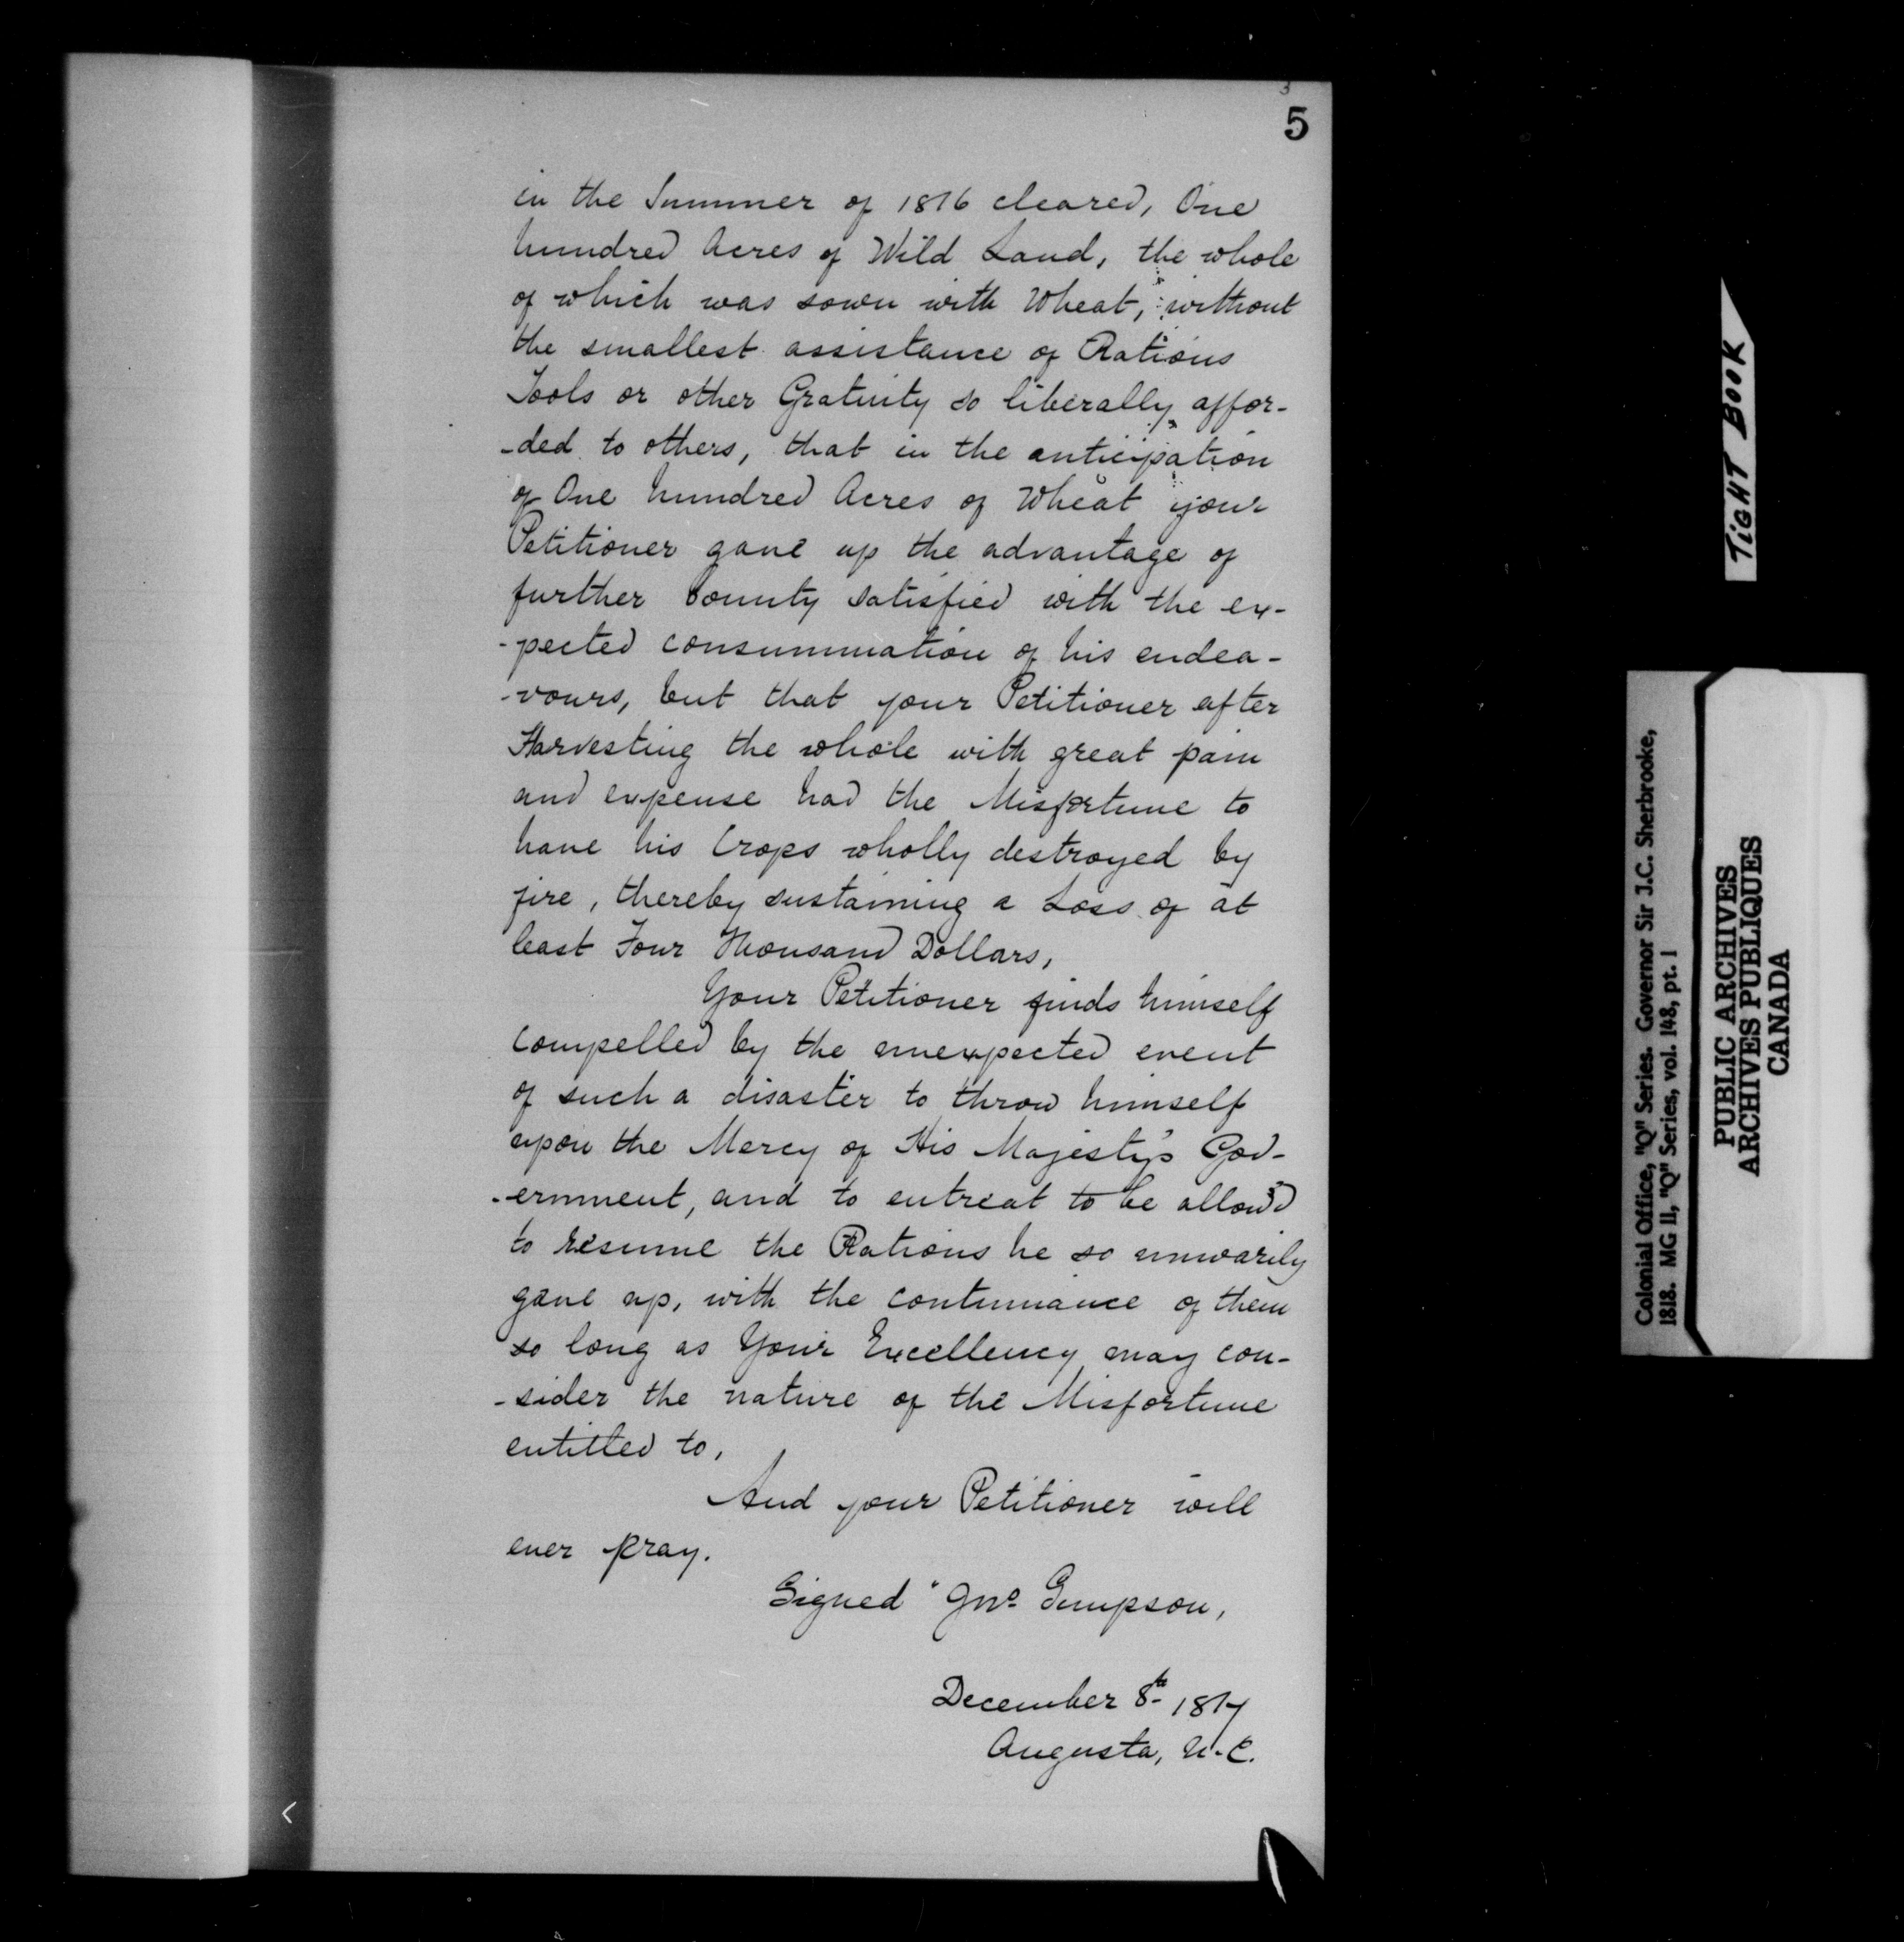 5
in the Summer of 1816 cleared, One
hundred Acres of Wild Land, the whole
of which was sown with Wheat, without
the smallest assistance of Rations
Tools or other Gratuity so liberally affor-
-ded to others, that in the anticipation
of One hundred Acres of Wheat your
Petitioner gave up the advantage of
further bounty satisfied with the ex-
-pected consummation of his endea-
-vours, but that your Petitioner after
Harvesting the whole with great pain
and expense had the Misfortune to
have his Crops wholly destroyed by
fire, thereby sustaining a Loss of at
least Four Thousand Dollars,
Your Petitioner finds himself
compelled by the unexpected event
of such a disaster to throw himself
upon the Mercy of His Majesty's Gov-
-ernment, and to entreat to be allow'd
to resume the Rations he so unwarily
gave up, with the continuance of them
so long as Your Excellency may con-
-sider the nature of the Misfortune
entitled to,
And your Petitioner will
ever pray.
Signed "Jno. Simpson,
December 8th 1817
Augusta, U.C.
TIGHT BOOK
Colonial Office, "Q" Series. Governor Sir J.C. Sherbrooke,
1818. MG 11, "Q" Series, vol. 148, pt. 1
PUBLIC ARCHIVES
ARCHIVES PUBLIQUES
CANADA